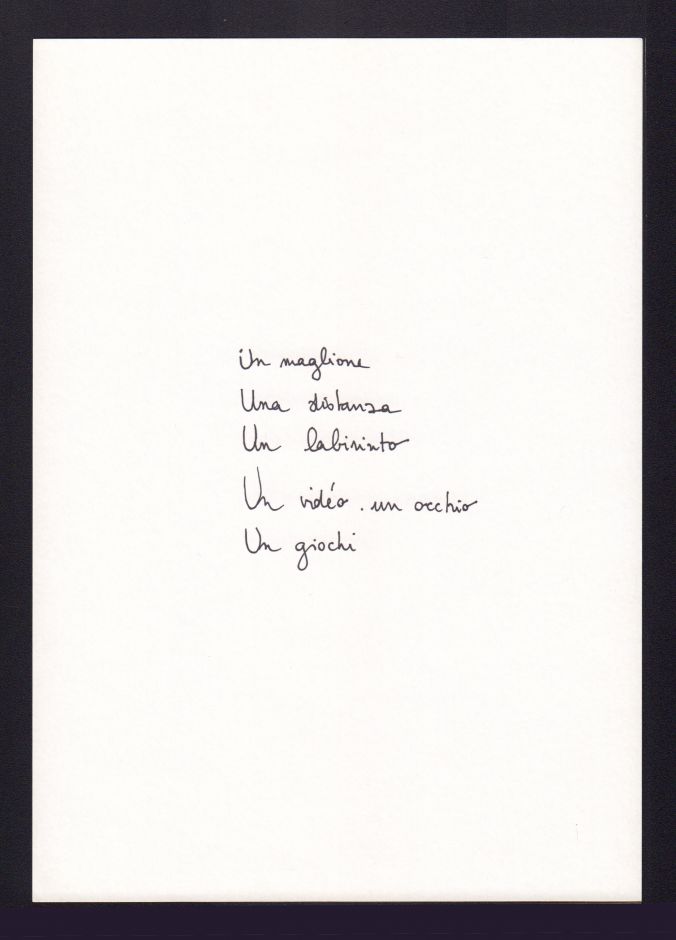 Un maglione
Una distanza
Un labirinto
Un vidéo . un occhio
Un giochi